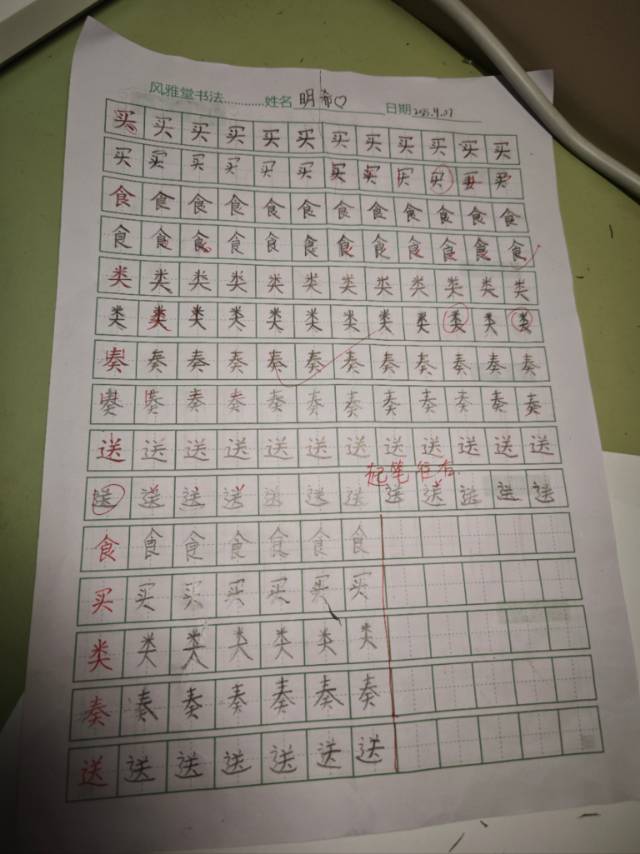 风雅堂书法............姓名 明 日期
买买买买买买买买买买买买
买买买买买买买买买买买买
食食食食食食食食食食食食
食食食食食食食食食食食食
类类类类类类类类类类类类
类类类类类类类类类类类类
奏奏奏奏奏奏奏奏奏奏奏奏
奏奏奏奏奏奏奏奏奏奏奏奏
送送送送送送送送送送送送
起笔往右
送送送送送送送送送送送送
食食食食食食食
买买买买买买买
类类类类类类类
奏奏奏奏奏奏奏
送送送送送送送